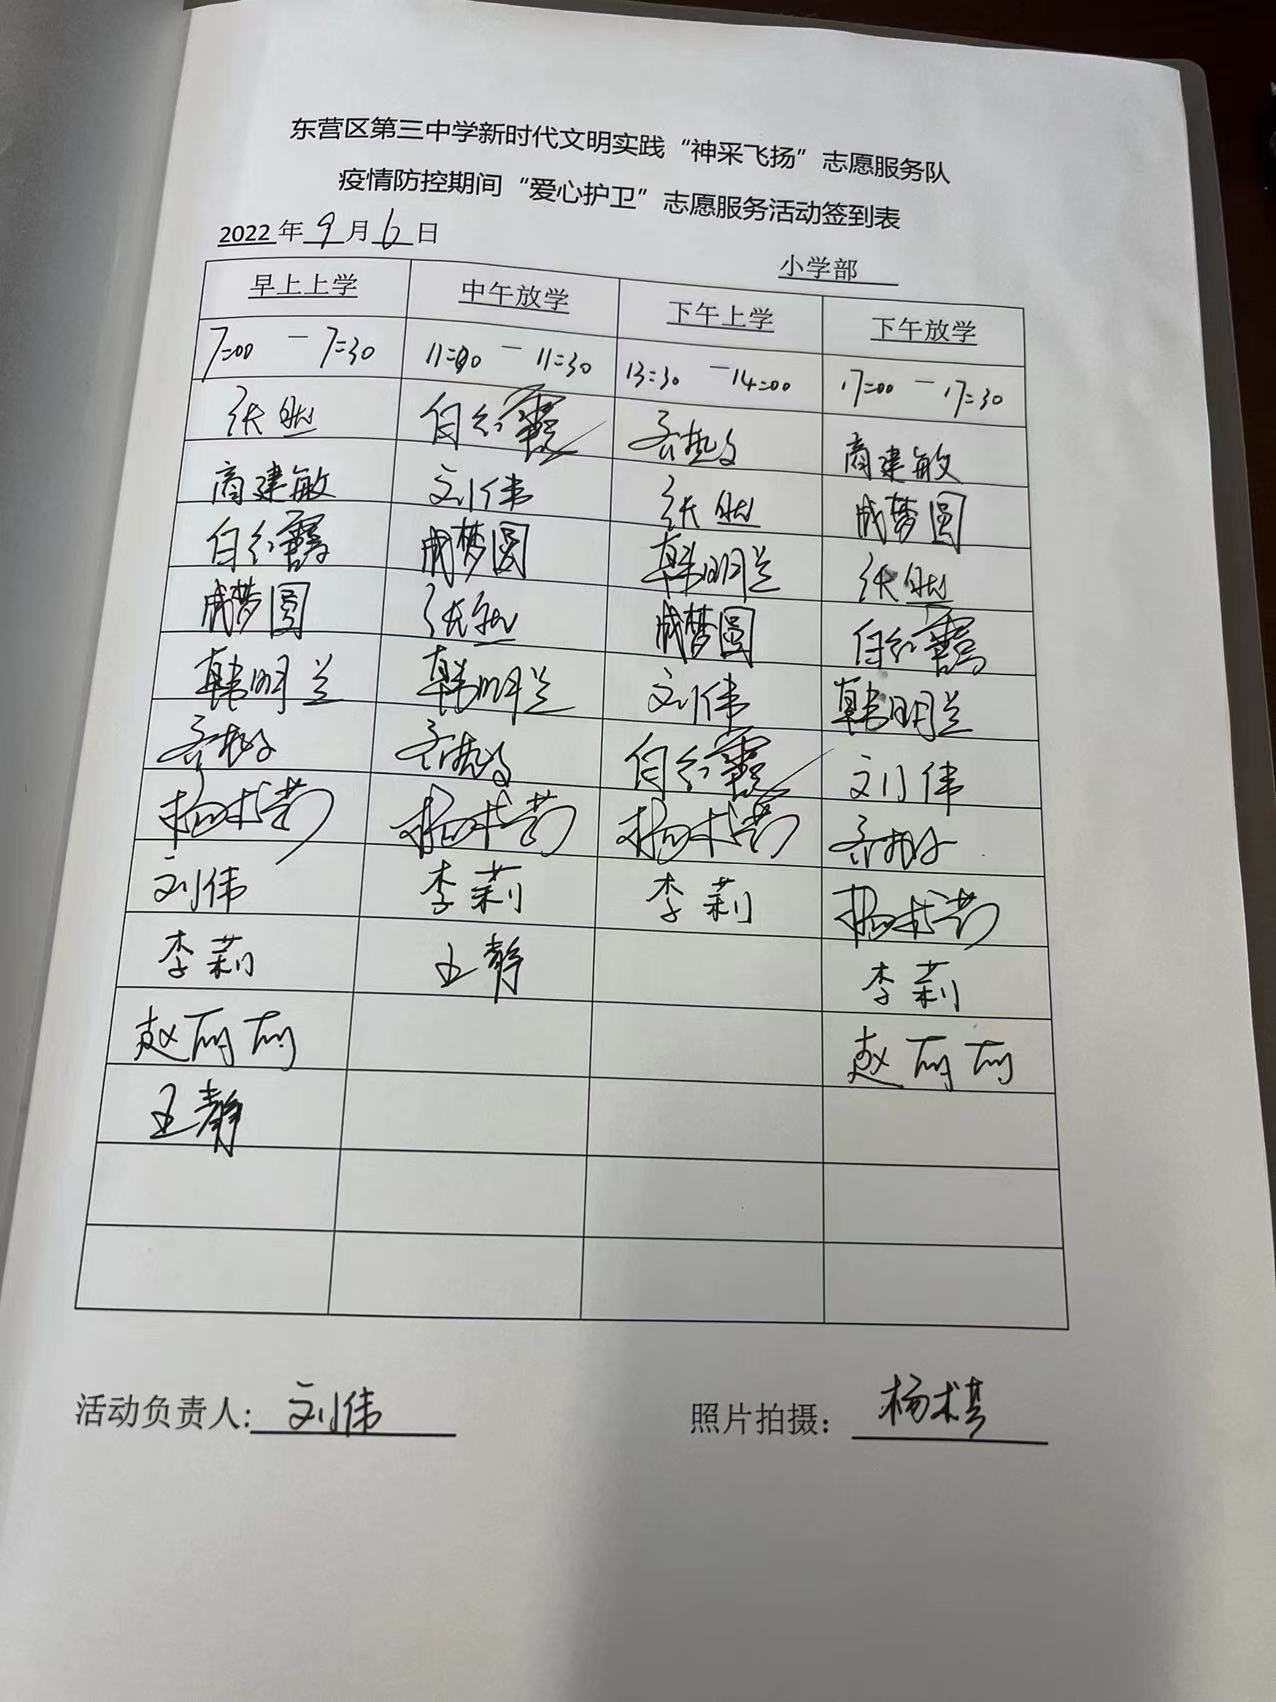 东营区第三中学新时代文明实践“神采飞扬”志愿服务队
疫情防控期间“爱心护卫”志愿服务活动签到表
2022 年 9 月 6 日
小学部
早上上学 中午放学 下午上学 下午放学
7:00 - 7:30 11:00 - 11:30 13:30 - 14:00 17:00 - 17:30
张 白红霞 商建敏
商建敏 刘伟 张 成梦圆
白红霞 成梦圆 韩明兰 张
成梦圆 张 成梦圆 白红霞
韩明兰 韩明兰 刘伟 韩明兰
白红霞 刘伟
杨 杨 杨
刘伟 李莉 李莉 杨
李莉 王静 李莉
赵丽丽 赵丽丽
王静
活动负责人: 刘伟 照片拍摄: 杨术